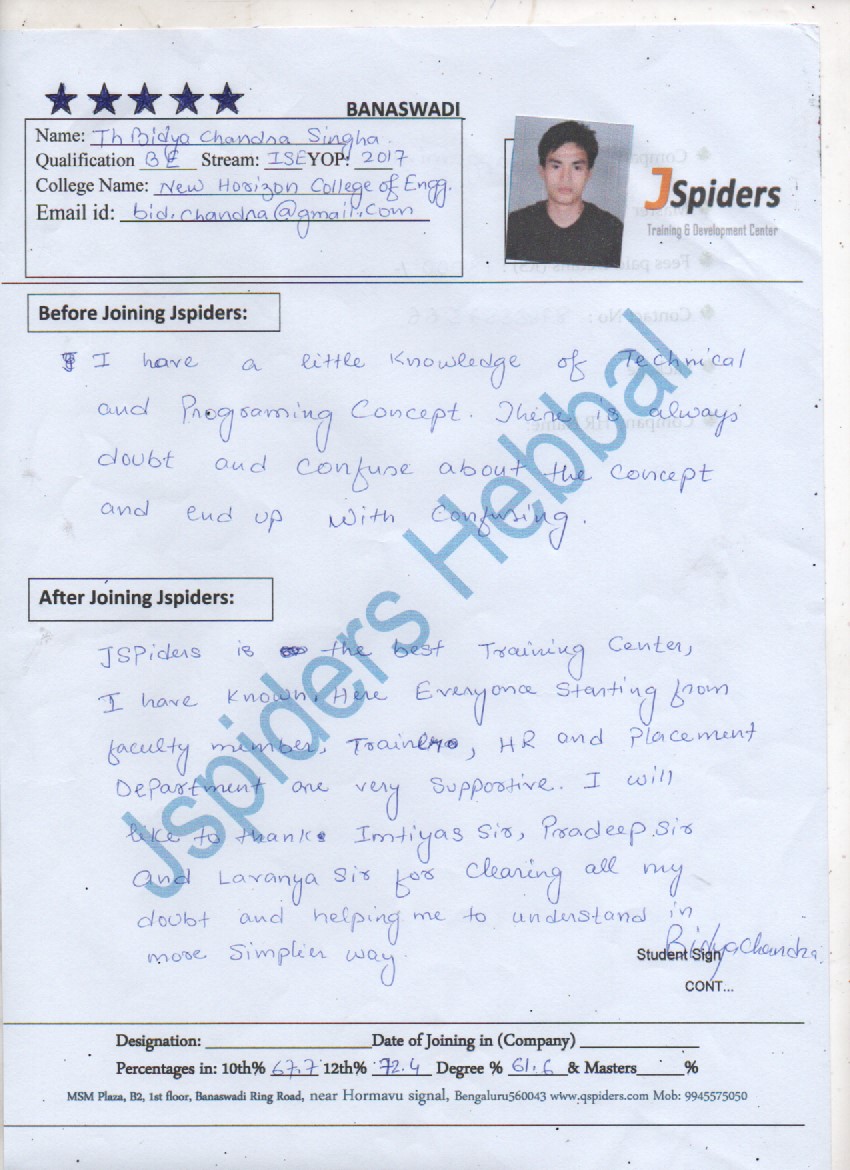 BANASWADI
Name: Th Bidya Chandra Singha.
Qualification BE Stream: ISE YOP: 2017
College Name: New Horizon College of Engg.
Email id: bid.chandra@gmail.com
JSpiders
Training & Development Center
Before Joining Jspiders:
I have a little Knowledge of Technical
and Programing Concept. There is always
doubt and confuse about the concept
and end up with Confusing.
After Joining Jspiders:
JSPiders is the best Training Center,
I have known. Here Everyone Starting from
faculty member, Trainers, HR and Placement
Department are very Supportive. I will
like to thank Imtiyas Sir, Pradeep.Sir
and Lavanya Sir for Clearing all my
doubt and helping me to understand in
more Simplier way.
Student Sign Bidyachandra.
CONT...
Jspiders Hebbal
Designation: Date of Joining in (Company)
Percentages in: 10th% 67.7 12th% 72.4 Degree % 61.6 & Masters %
MSM Plaza, B2, 1st floor, Banaswadi Ring Road, near Hormavu signal, Bengaluru560043 www.qspiders.com Mob: 9945575050